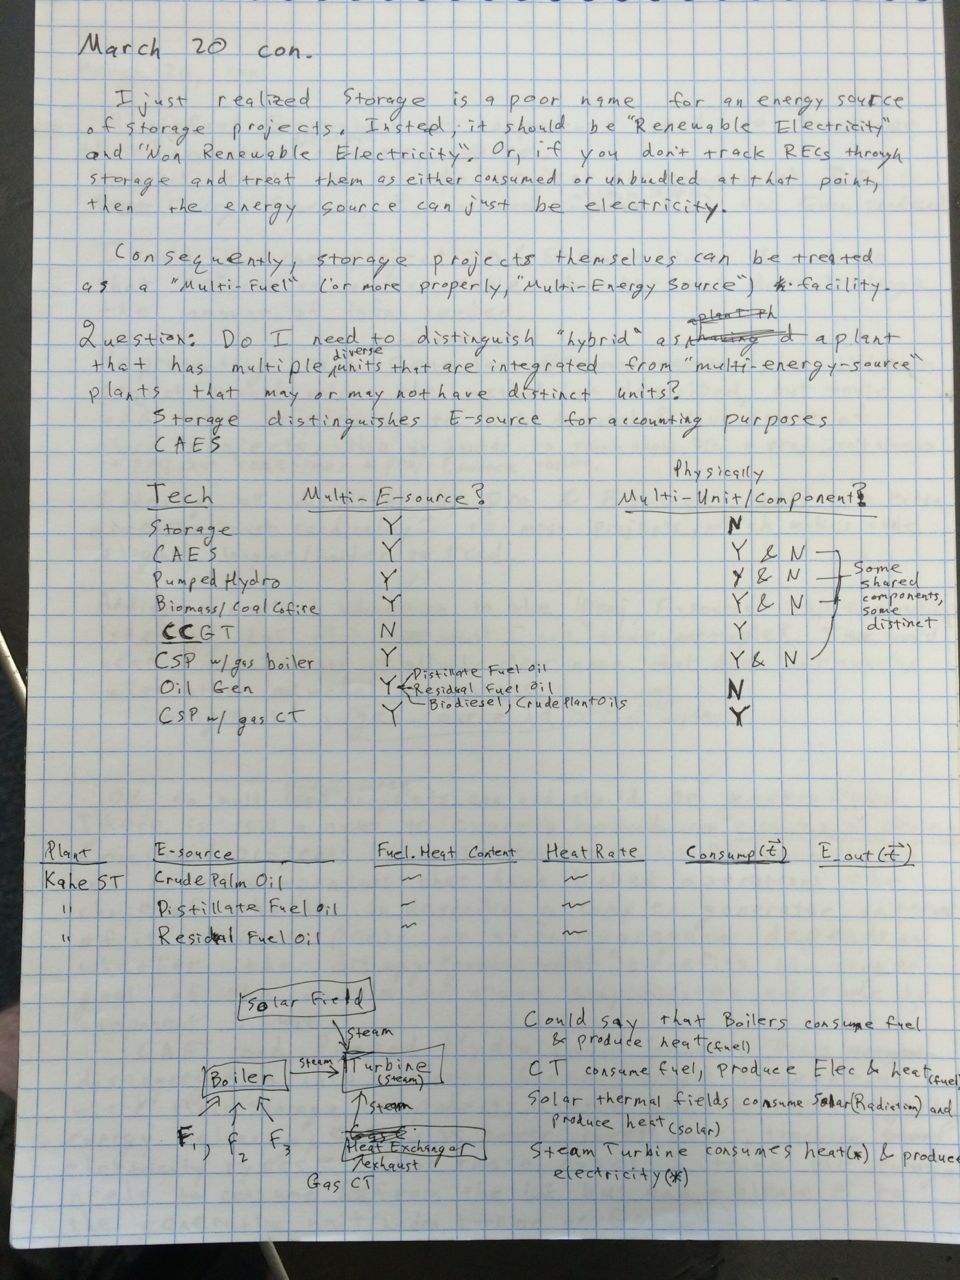 March 20 con.
I just realized Storage is a poor name for an energy source
of storage projects. Insted, it should be "Renewable Electricity"
and "Non Renewable Electricity". Or, if you don't track RECs through
storage and treat them as either consumed or unbundled at that point,
then the energy source can just be electricity.
Consequently, storage projects themselves can be treated
as a "Multi-Fuel" (or more properly, "Multi-Energy Source") facility.
Question: Do I need to distinguish "hybrid" as a plant
that has multiple diverse units that are integrated from "multi-energy-source"
plants that may or may not have distinct units?
Storage distinguishes E-source for accounting purposes
CAES
Tech Multi-E-source? Physically Multi-Unit/Component?
Storage Y N
CAES Y Y & N
Pumped Hydro Y Y & N
Biomass/Coal Cofire Y Y & N
CCGT N Y
CSP w/ gas boiler Y Y & N
Some shared components, some distinct
Oil Gen Y Distillate Fuel Oil N
Residual Fuel Oil
Biodiesel, Crude Plant Oils
CSP w/ gas CT Y Y
Plant E-source Fuel.Heat Content Heat Rate Consump(t) E_out(t)
Kahe ST Crude Palm Oil ~ ~
" Distillate Fuel Oil ~ ~
" Residual Fuel Oil ~ ~
Solar Field
Steam
Boiler
Steam
Turbine
(steam)
F1, F2 F3
Steam
Heat Exchanger
exhaust
Gas CT
Could say that Boilers consume fuel
& produce heat(fuel)
CT consume fuel, produce Elec & heat(fuel)
Solar thermal fields consume Solar(Radiation) and
produce heat(solar)
Steam Turbine consumes heat(*) & produce
electricity(*)